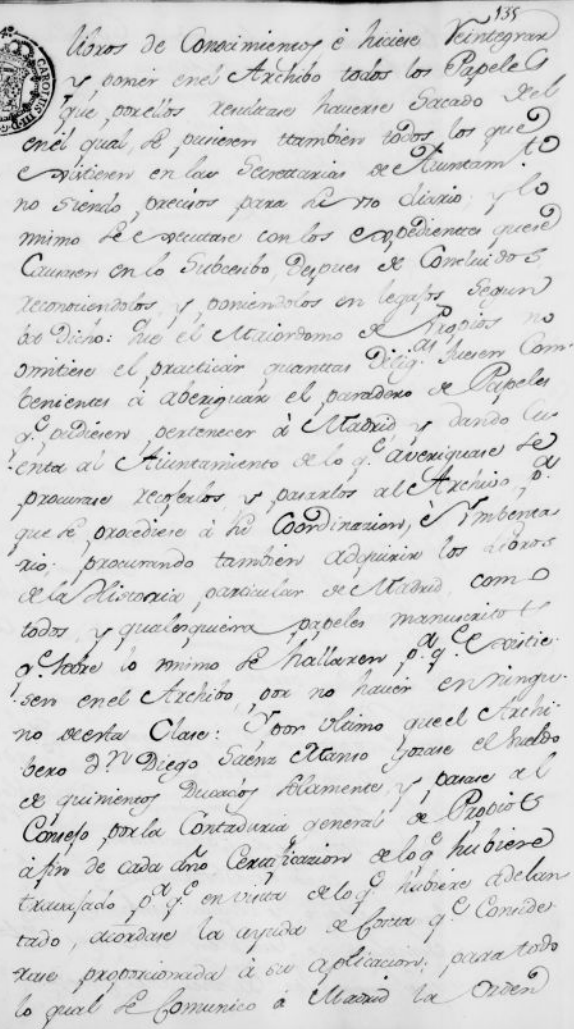 135
libros de Conocimientos é hiciese Reintegrar
y poner en el Archibo todos los Papeles
que por ellos resultase haverse Sacado del
en el qual, se pusiesen ttambien todos los que
existiesen en las Secretarias de Aiuntam.to
no siendo precisos para su uso diario; y lo
mismo se executase con los expedientes que se
Causasen en lo Subcesibo, despues de Concluidos,
reconociendolos, y poniendolos en legajos segun
ba Dicho: Que el Maiordomo de Propios no
omitiese el practicar quanttas Dilig.as fuesen Com-
benientes á aberiguar el paradero de Papeles
q.e pudiesen pertenecer á Madrid, y dando Cu-
enta al Aiuntamiento de lo q.e averiguase se
procurase recojerlos, y pasarlos al Archibo, p.a
que se procediese á su Coordinazion, è Ymbenta-
rio; procurando tambien adquirir los Libros
de la Historia particular de Madrid, como
todos, y qualesquiera papeles manuscritos
q.e sobre lo mismo se hallaren p.a q.e existie-
sen en el Archibo, por no haver en el ningu-
no de esta Clase: Y por ultimo que el Archi-
bero D.n Diego Saenz Manso gozase el sueldo
de quinientos Ducados solamente, y pasase al
Consejo por la Contaduria general de Propios
á fin de cada año Certificazion de lo q.e hubiere
travajado p.a q.e en vista de lo q.e hubiere adelan-
tado, acordase la ayuda de Costa q.e Conside-
rase proporcionada á su aplicacion; para todo
lo qual se Comunico á Madrid la Orden